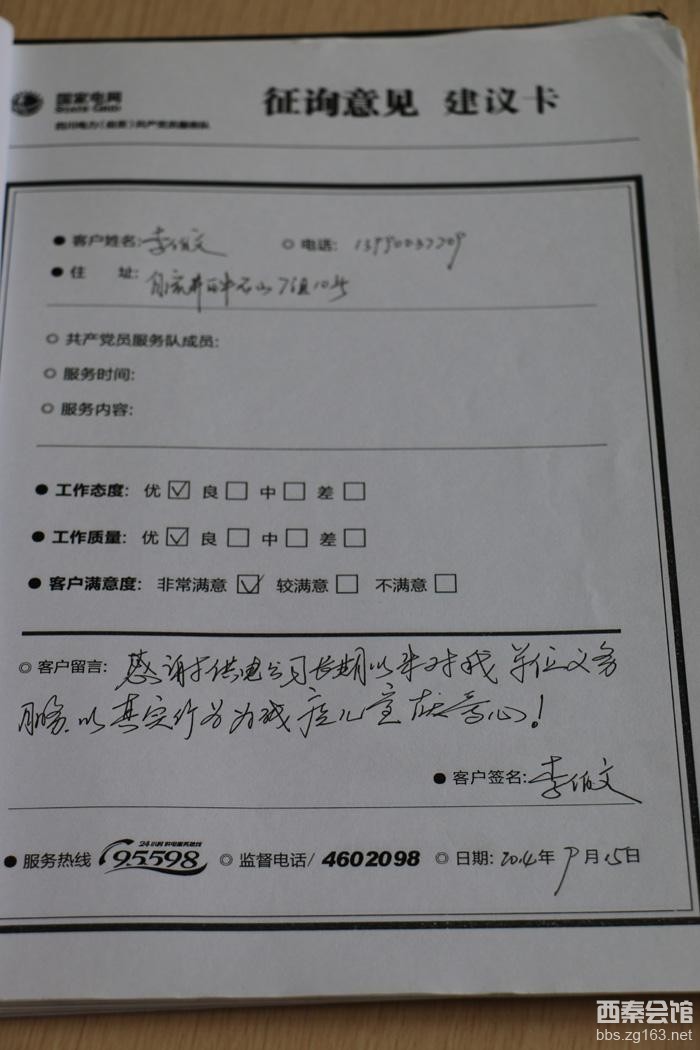 国家电网
STATE GRID
四川电力（自贡）共产党员服务队
征询意见 建议卡
● 客户姓名: 李伯文 ◎ 电话: 13990037709
● 住 址: 自流井 10号
◎ 共产党员服务队成员:
◎ 服务时间:
◎ 服务内容:
● 工作态度: 优 ☑ 良 □ 中 □ 差 □
● 工作质量: 优 ☑ 良 □ 中 □ 差 □
● 客户满意度: 非常满意 ☑ 较满意 □ 不满意 □
◎ 客户留言: 感谢供电公司长期以来对我单位义务
服务.以其实行为为残疾儿童献爱心!
● 客户签名: 李伯文
● 服务热线 24小时供电服务热线 95598 ◎ 监督电话/ 4602098 ◎ 日期: 2014年 9月15日
西秦会馆
bbs.zg163.net